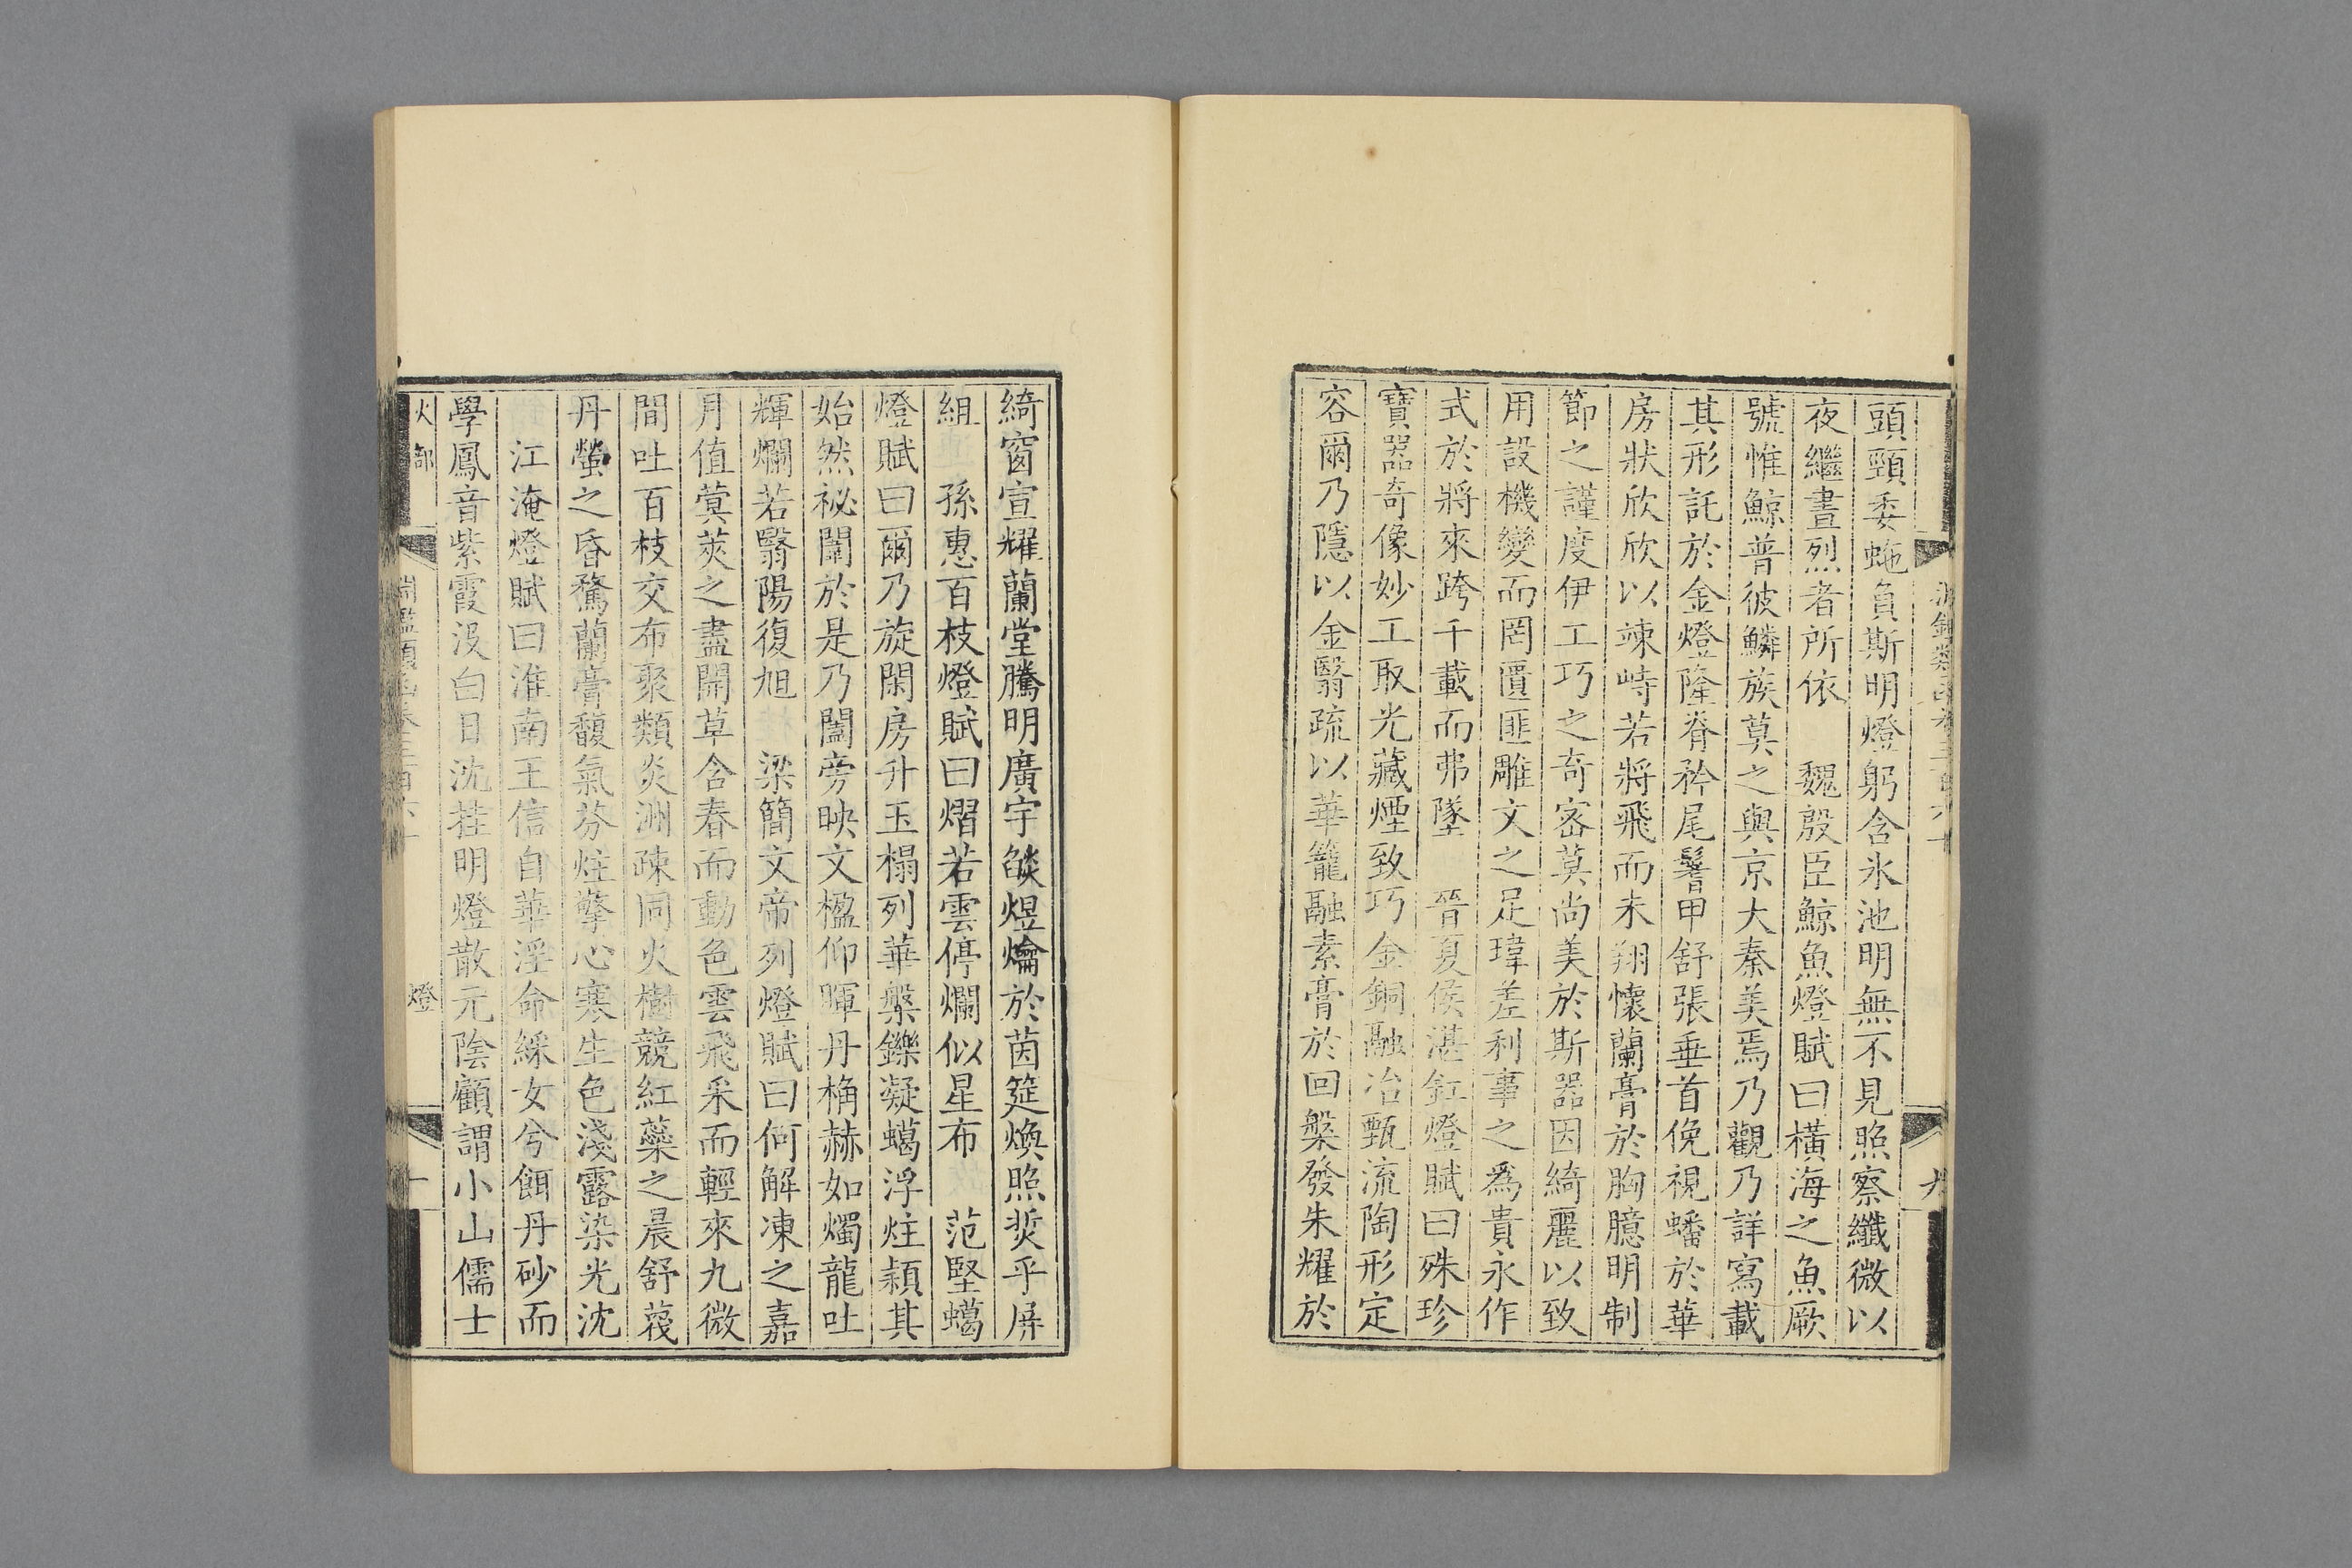 頭頸委蛇負斯明燈躬含氷池明無不見照察纖微以
夜繼晝烈者所依　魏殷臣鯨魚燈賦曰橫海之魚厥
號惟鯨普彼鱗族莫之與京大秦美焉乃觀乃詳寫載
其形託於金燈隆脊矜尾鬐甲舒張垂首俛視蟠於華
房狀欣欣以竦峙若將飛而未翔懷蘭膏於胸臆明制
節之謹度伊工巧之奇密莫尚美於斯器因綺麗以致
用設機變而罔匱匪雕文之足瑋差利事之爲貴永作
式於將來跨千載而弗墜　晉夏侯湛釭燈賦曰殊珍
寶器奇像妙工取光藏煙致巧金銅融冶甄流陶形定
容爾乃隱以金翳疏以華籠融素膏於回槃發朱耀於
綺窗宣耀蘭堂騰明廣宇燄煜爚於茵筵煥照熒乎屏
組　孫惠百枝燈賦曰熠若雲停爛似星布　范堅蠟
燈賦曰爾乃旋閑房升玉榻列華槃鑠凝蠟浮炷潁其
始然祕闈於是乃闔旁映文楹仰暉丹桷赫如燭龍吐
輝爛若翳陽復旭　梁簡文帝列燈賦曰何解凍之嘉
月值蓂莢之盡開草含春而動色雲飛采而輕來九微
間吐百枝交布聚類炎洲疎同火樹競紅蘂之晨舒蔑
丹螢之昏騖蘭膏馥氣芬炷擎心寒生色淺露染光沈
江淹燈賦曰淮南王信自華淫命綵女兮餌丹砂而
學鳳音紫霞沒白日沈挂明燈散元陰顧謂小山儒士
火部
燈